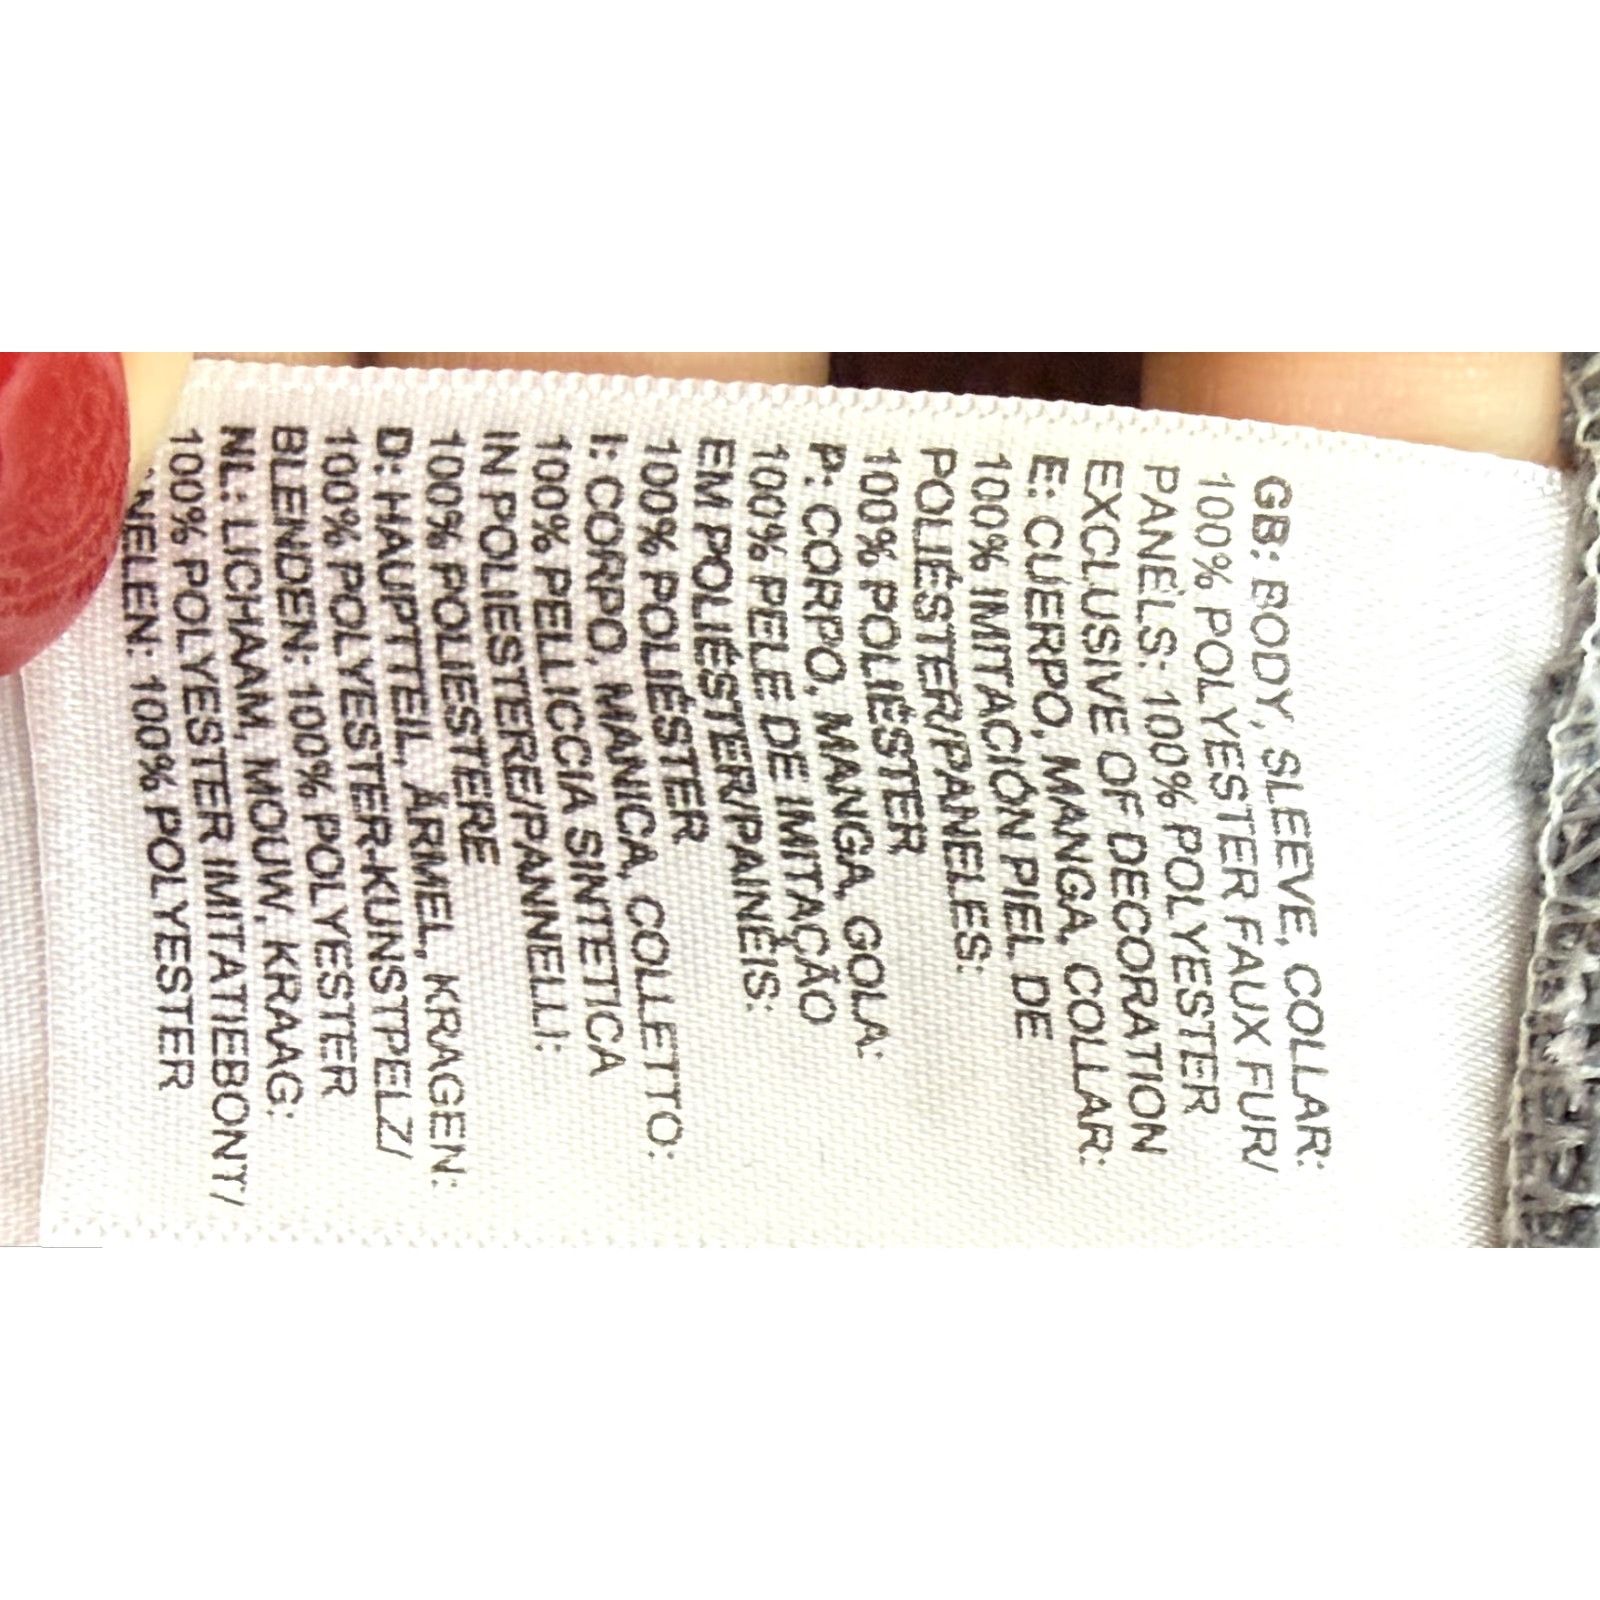 GB: BODY, SLEEVE, COLLAR:
100% POLYESTER FAUX FUR/
PANELS: 100% POLYESTER
EXCLUSIVE OF DECORATION
E: CUERPO, MANGA, COLLAR:
100% IMITACIÓN PIEL DE
POLIÉSTER/PANELES:
100% POLIÉSTER
P: CORPO, MANGA, GOLA:
100% PELE DE IMITAÇÃO
EM POLIÉSTER/PAINÉIS:
100% POLIÉSTER
I: CORPO, MANICA, COLLETTO:
100% PELLICCIA SINTETICA
IN POLIESTERE/PANNELLI:
100% POLIESTERE
D: HAUPTTEIL, ÄRMEL, KRAGEN:
100% POLYESTER-KUNSTPELZ/
BLENDEN: 100% POLYESTER
NL: LICHAAM, MOUW, KRAAG:
100% POLYESTER IMITATIEBONT/
NELEN: 100% POLYESTER